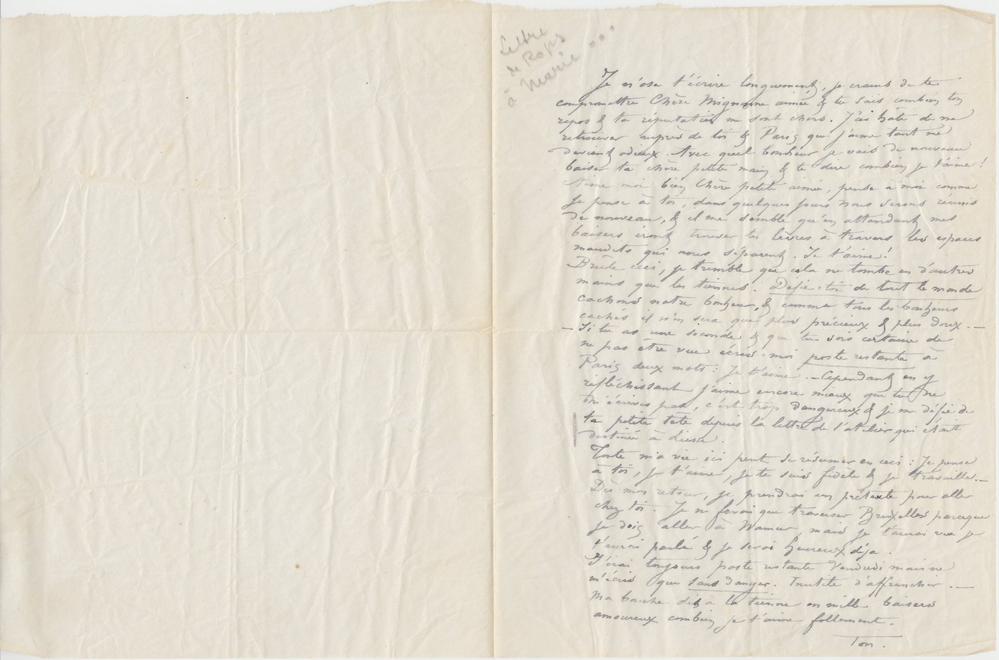 Lettre
de Rops
à Marie ...
Je n'ose t'écrire longuement, je crains de te
compromettre Chère Mignonne aimée & tu sais combien ton
repos & ta réputation me sont chers. J'ai hâte de me
retrouver auprès de toi & Paris que j'aime tant me
devient odieux. Avec quel bonheur je vais de nouveau
baiser ta chère petite main & te dire combien je t'aime !
Aime moi bien Chère petite aimée, pense à moi comme
je pense à toi, dans quelques jours nous serons réunis
de nouveau, & il me semble qu'en attendant mes
baisers iront trouver tes lèvres à travers les espaces
maudits qui nous séparent. Je t'aime !
Brûle ceci, je tremble que cela ne tombe en d'autres
mains que les tiennes. Défie-toi de tout le monde
cachons notre bonheur, & comme tous les bonheurs
cachés il n'en sera que plus précieux & plus doux. —
— Si tu as une seconde & que tu sois certaine de
ne pas être vue écris-moi poste restante à
Paris deux mots : Je t'aime. — Cependant en y
réfléchissant j'aime encore mieux que tu ne
m'écrives pas, c'est trop dangereux & je me défie de
ta petite tête depuis la lettre de l'atelier qui était
destinée à
Toute ma vie ici peut se résumer en ceci : Je pense
à toi, je t'aime, je te suis fidèle & je travaille. —
Dès mon retour, je prendrai un prétexte pour aller
chez toi. Je ne ferai que traverser Bruxelles parceque
je dois aller à Namur, mais je t'aurai vue je
t'aurai parlé & je serai heureux déja.
J'irai toujours poste restante Vendredi mais ne
m'écris que sans danger. Inutile d'affranchir. —
Ma bouche dit à la tienne en mille baisers
amoureux combien je t'aime follement.
Ton.